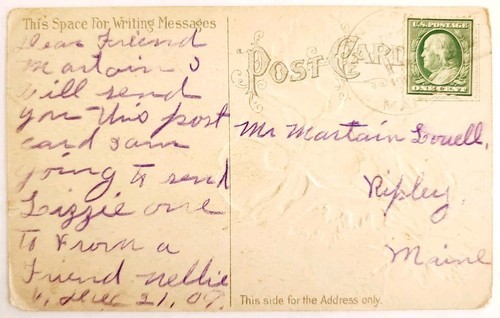 This Space For Writing Messages
Dear Friend
Martain I
will send
you this post
card I am
going to send
Lizzie one
to From a
Friend Nellie
Dec 21, 09.
POST CARD
U.S. POSTAGE
ONE CENT
Mr Martain Lovell,
Ripley
Maine
This side for the Address only.